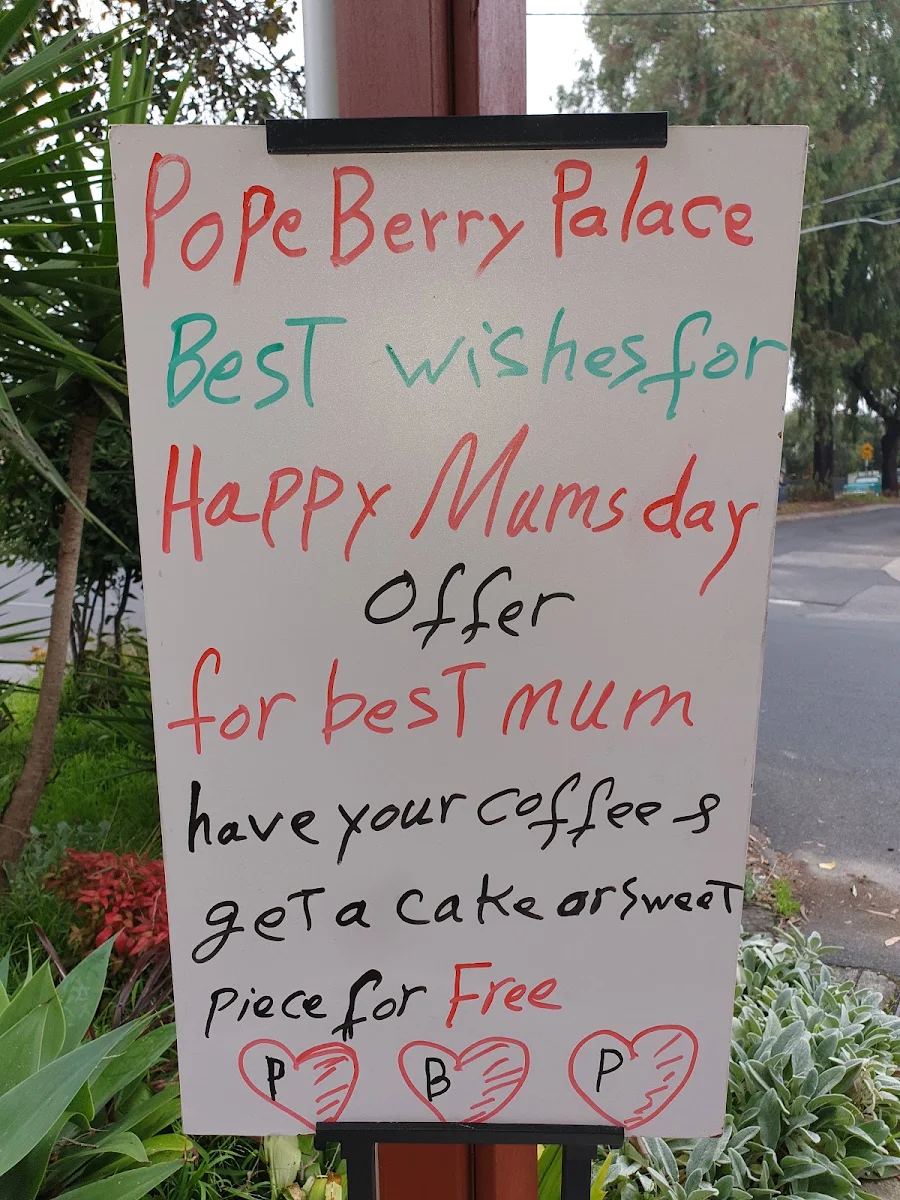 Pope Berry Palace
Best wishes for
Happy Mums day
Offer
for best mum
have your coffee &
get a cake or sweet
piece for Free
P B P